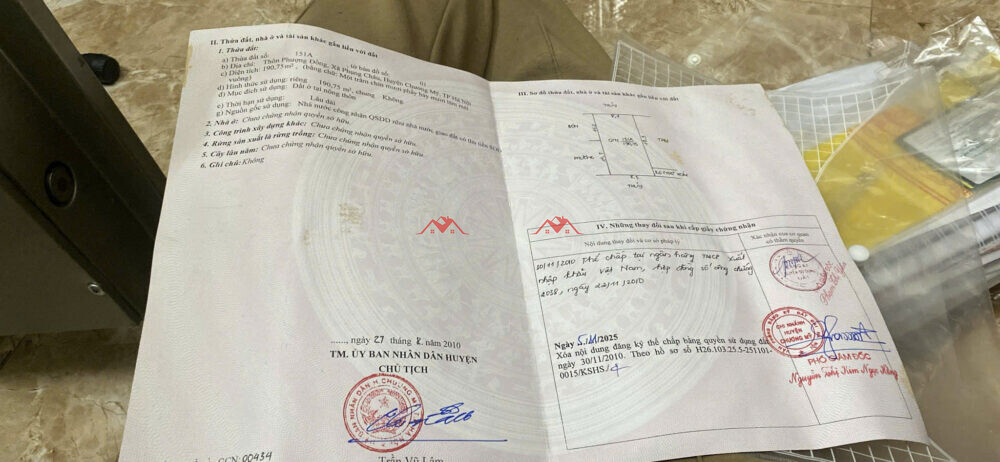 II. Thửa đất, nhà ở và tài sản khác gắn liền với đất
1. Thửa đất:
a) Thửa đất số: 151A tờ bản đồ số: 01
b) Địa chỉ: Thôn Phượng Đồng, Xã Phụng Châu, Huyện Chương Mỹ, TP Hà Nội
c) Diện tích: 190,75m², (bằng chữ: Một trăm chín mươi phẩy bảy mươi lăm mét
vuông)
d) Hình thức sử dụng: riêng 190,75 m², chung Không
đ) Mục đích sử dụng: Đất ở tại nông thôn
e) Thời hạn sử dụng: Lâu dài
g) Nguồn gốc sử dụng: Nhà nước công nhận QSDĐ như nhà nước giao đất có thu tiền SDĐ
2. Nhà ở: Chưa chứng nhận quyền sở hữu.
3. Công trình xây dựng khác: Chưa chứng nhận quyền sở hữu.
4. Rừng sản xuất là rừng trồng: Chưa chứng nhận quyền sở hữu.
5. Cây lâu năm: Chưa chứng nhận quyền sở hữu.
6. Ghi chú: Không
......, ngày 27 tháng 8 năm 2010
TM. ỦY BAN NHÂN DÂN HUYỆN
CHỦ TỊCH
Trần Vũ Lâm
GCN: 00434
III. Sơ đồ thửa đất, nhà ở và tài sản khác gắn liền với đất
THỦY
151A
190,75
THỦY
IV. Những thay đổi sau khi cấp giấy chứng nhận
Nội dung thay đổi và cơ sở pháp lý
Xác nhận của cơ quan
có thẩm quyền
30/11/2010 Thế chấp tại ngân hàng TMCP Xuất
nhập khẩu Việt Nam, hợp đồng số công chứng
2038, ngày 22/11/2010
Ngày 5/11/2025
Xóa nội dung đăng ký thế chấp bằng quyền sử dụng đất
ngày 30/11/2010. Theo hồ sơ số H26.103.25.5-251101-
0015/KSHS/
CHI NHÁNH
HUYỆN
CHƯƠNG MỸ
PHÓ GIÁM ĐỐC
Nguyễn Thị Kim Ngọc